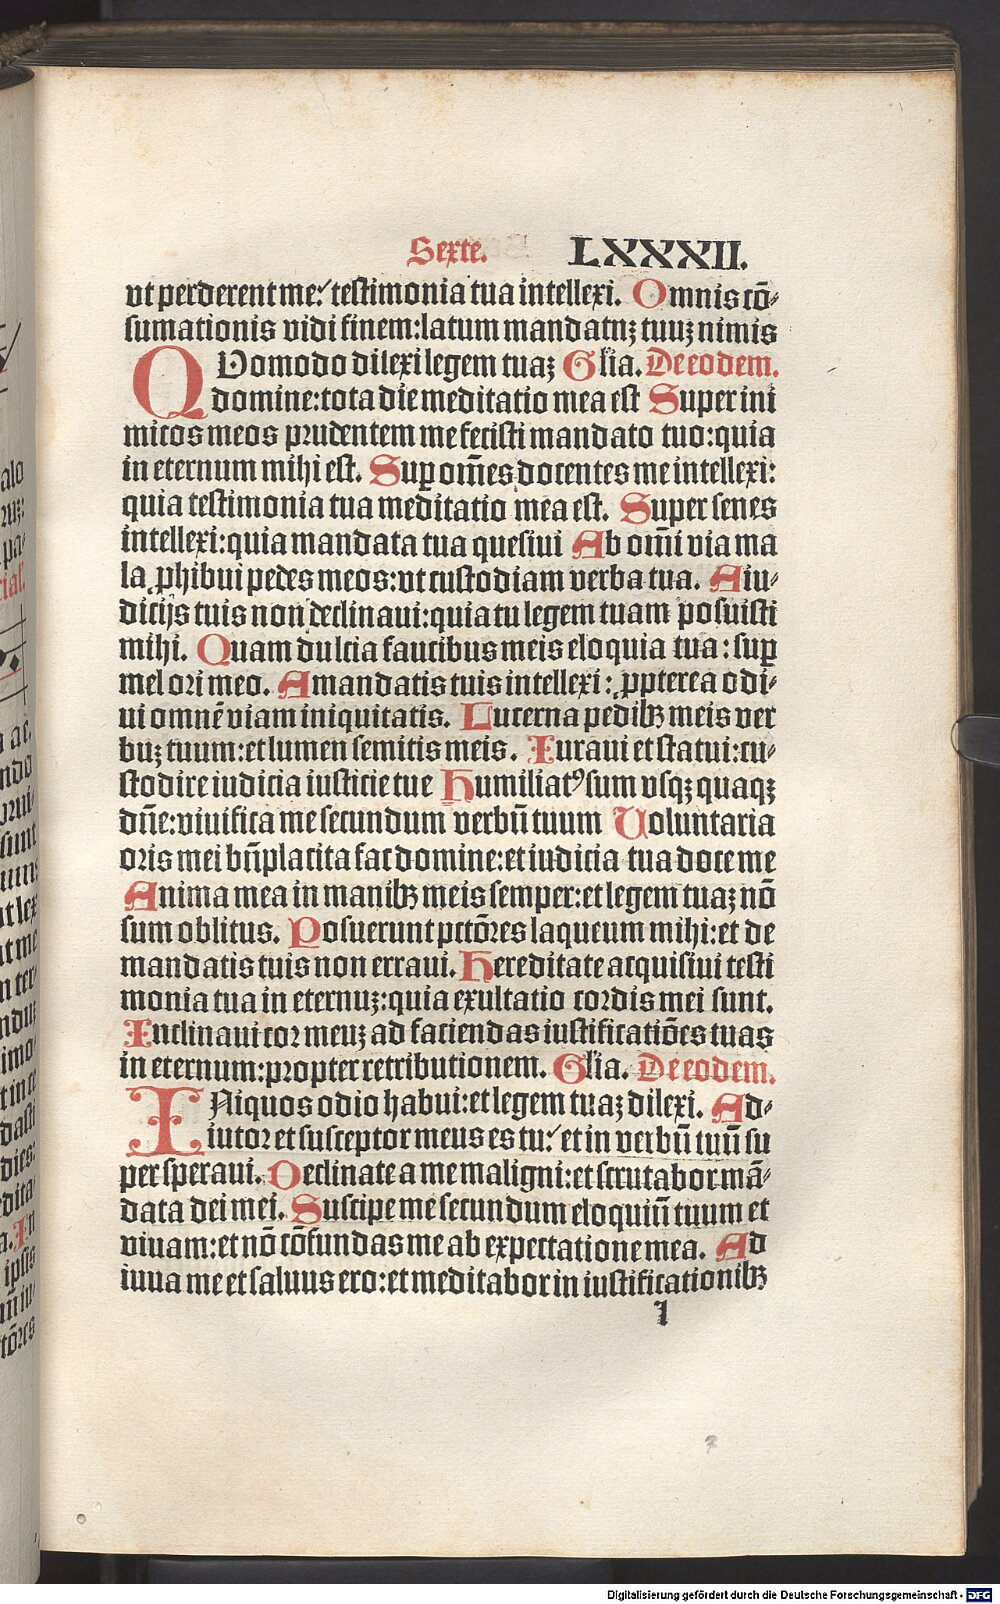 Sexte. LXXXII.
vt perderent me: testimonia tua intellexi. Omnis cõ-
sumationis vidi finem: latum mandatuꝫ tuuꝫ nimis
QVomodo dilexi legem tuaꝫ Glia. De eodem.
domine: tota die meditatio mea est Super ini
micos meos prudentem me fecisti mandato tuo: quia
in eternum mihi est. Suꝑ om̃es docentes me intellexi:
quia testimonia tua meditatio mea est. Super senes
intellexi: quia mandata tua quesiui Ab om̃i via ma
la ꝓhibui pedes meos: vt custodiam verba tua. A iu-
dicijs tuis non declinaui: quia tu legem tuam posuisti
mihi. Quam dulcia faucibus meis eloquia tua: suꝑ
mel ori meo. A mandatis tuis intellexi: ꝓpterea odi-
ui omnẽ viam iniquitatis. Lucerna pedibꝫ meis ver
buꝫ tuum: et lumen semitis meis. Iuraui et statui: cu-
stodire iudicia iusticie tue Humiliatꝰ sum vsqꝫ quaqꝫ
dñe: viuifica me secundum verbũ tuum Voluntaria
oris mei bñplacita fac domine: et iudicia tua doce me
Anima mea in manibꝫ meis semper: et legem tuaꝫ nõ
sum oblitus. Posuerunt pctõres laqueum mihi: et de
mandatis tuis non erraui. Hereditate acquisiui testi
monia tua in eternuꝫ: quia exultatio cordis mei sunt.
Inclinaui cor meuꝫ ad faciendas iustificatiões tuas
in eternum: propter retributionem. Glia. De eodem.
INiquos odio habui: et legem tuaꝫ dilexi. Ad-
iutor et susceptor meus es tu: et in verbũ tuũ su
per speraui. Declinate a me maligni: et scrutabor mã-
data dei mei. Suscipe me secundum eloquiũ tuum et
viuam: et nõ cõfundas me ab expectatione mea. Ad
iuua me et saluus ero: et meditabor in iustificationibꝫ
l
Digitalisierung gefördert durch die Deutsche Forschungsgemeinschaft - DFG